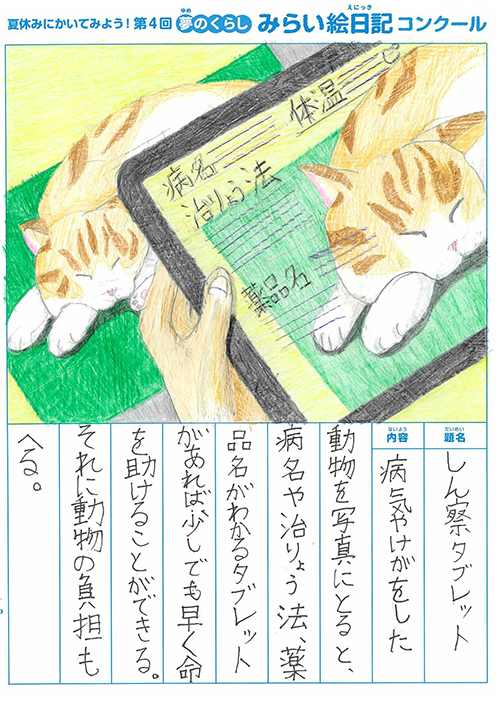 夏休みにかいてみよう！第4回 夢のくらし みらい絵日記 コンクール
ゆめ
えにっき
体温
℃
病名
治りょう法
薬品名
だいめい
題名
しん察タブレット
ないよう
内容
病気やけがをした
動物を写真にとると、
病名や治りょう法、薬
品名がわかるタブレット
があれば、少しでも早く命
を助けることができる。
それに動物の負担も
へる。